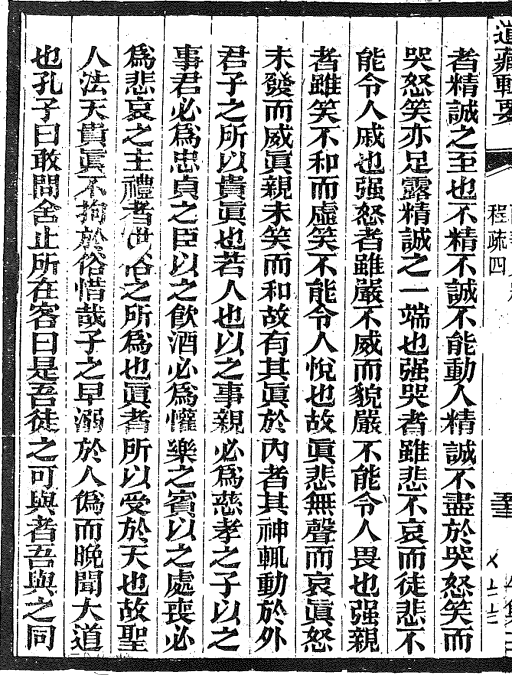 道藏輯要
程疏四
者精誠之至也不精不誠不能動人精誠不盡於哭怒笑而
哭怒笑亦足露精誠之一端也强哭者雖悲不哀而徒悲不
能令人戚也强怒者雖嚴不威而貌嚴不能令人畏也强親
者雖笑不和而虛笑不能令人悅也故眞悲無聲而哀眞怒
未發而威眞親未笑而和故有其眞於內者其神輒動於外
君子之所以貴眞也若人也以之事親必爲慈孝之子以之
事君必爲忠貞之臣以之飮酒必爲懽樂之賓以之處喪必
爲悲哀之主禮者世俗之所爲也眞者所以受於天也故聖
人法天貴眞不拘於俗惜哉子之早溺於人僞而晩聞大道
也孔子曰敢問舍止所在客曰是吾徒之可與者吾與之同